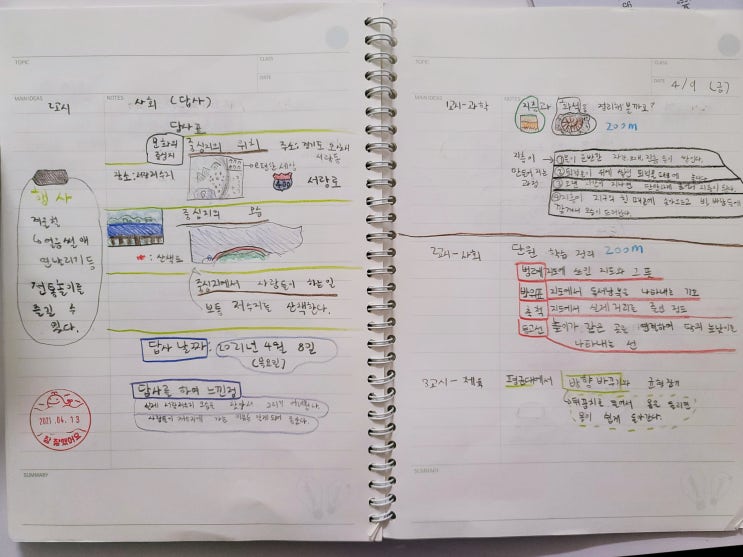 TOPIC
CLASS
DATE
MAIN IDEAS
NOTES
2교시
사회 (답사)
답사표
문화의 중심지
중심지의 위치
주소: 경기도 오산시
서랑동
장소: 서랑저수지
e편한세상
서랑로
행사
겨울철
↳ 얼음썰매
연날리기 등
전통놀이를
즐길 수
있다.
중심지의 모습
: 산책로
중심지에서 사람들이 하는 일
보통 저수지를 산책한다.
답사 날짜:
2021년 4월 8일
(목요일)
답사를 하며 느낀점
2021.04.13
참 잘했어요
SUMMARY
TOPIC
CLASS
DATE
4/9 (금)
MAIN IDEAS
NOTES
1교시-과학
지층과 화석을 정리해볼까요?
ZOOM
지층이
만들어지는
과정
① 물이 운반한 자갈, 모래, 진흙 등이 쌓인다.
② 퇴적물이 위에 쌓인 퇴적물
③ 오랜 시간이 지나면 단단하게 굳어져 지층이 된다.
④ 지층이 지구의 힘 때문에 솟아오르고 비, 바람 등에
깎여서 모습이 드러난다.
2교시-사회
단원 학습 정리 ZOOM
범례 지도에 쓰인 기호와 그 뜻
방위표 지도에서 동서남북을 나타내는 기호
축척 지도에서 실제 거리를 줄인 정도
등고선 높이가 같은 곳을 연결하여 땅의 높낮이를
나타내는 선
3교시-체육
평균대에서 방향 바꾸기와 균형잡기
↳ 뒤꿈치를 들어서 몸을 돌리면
몸이 쉽게 돌아간다.
SUMMARY